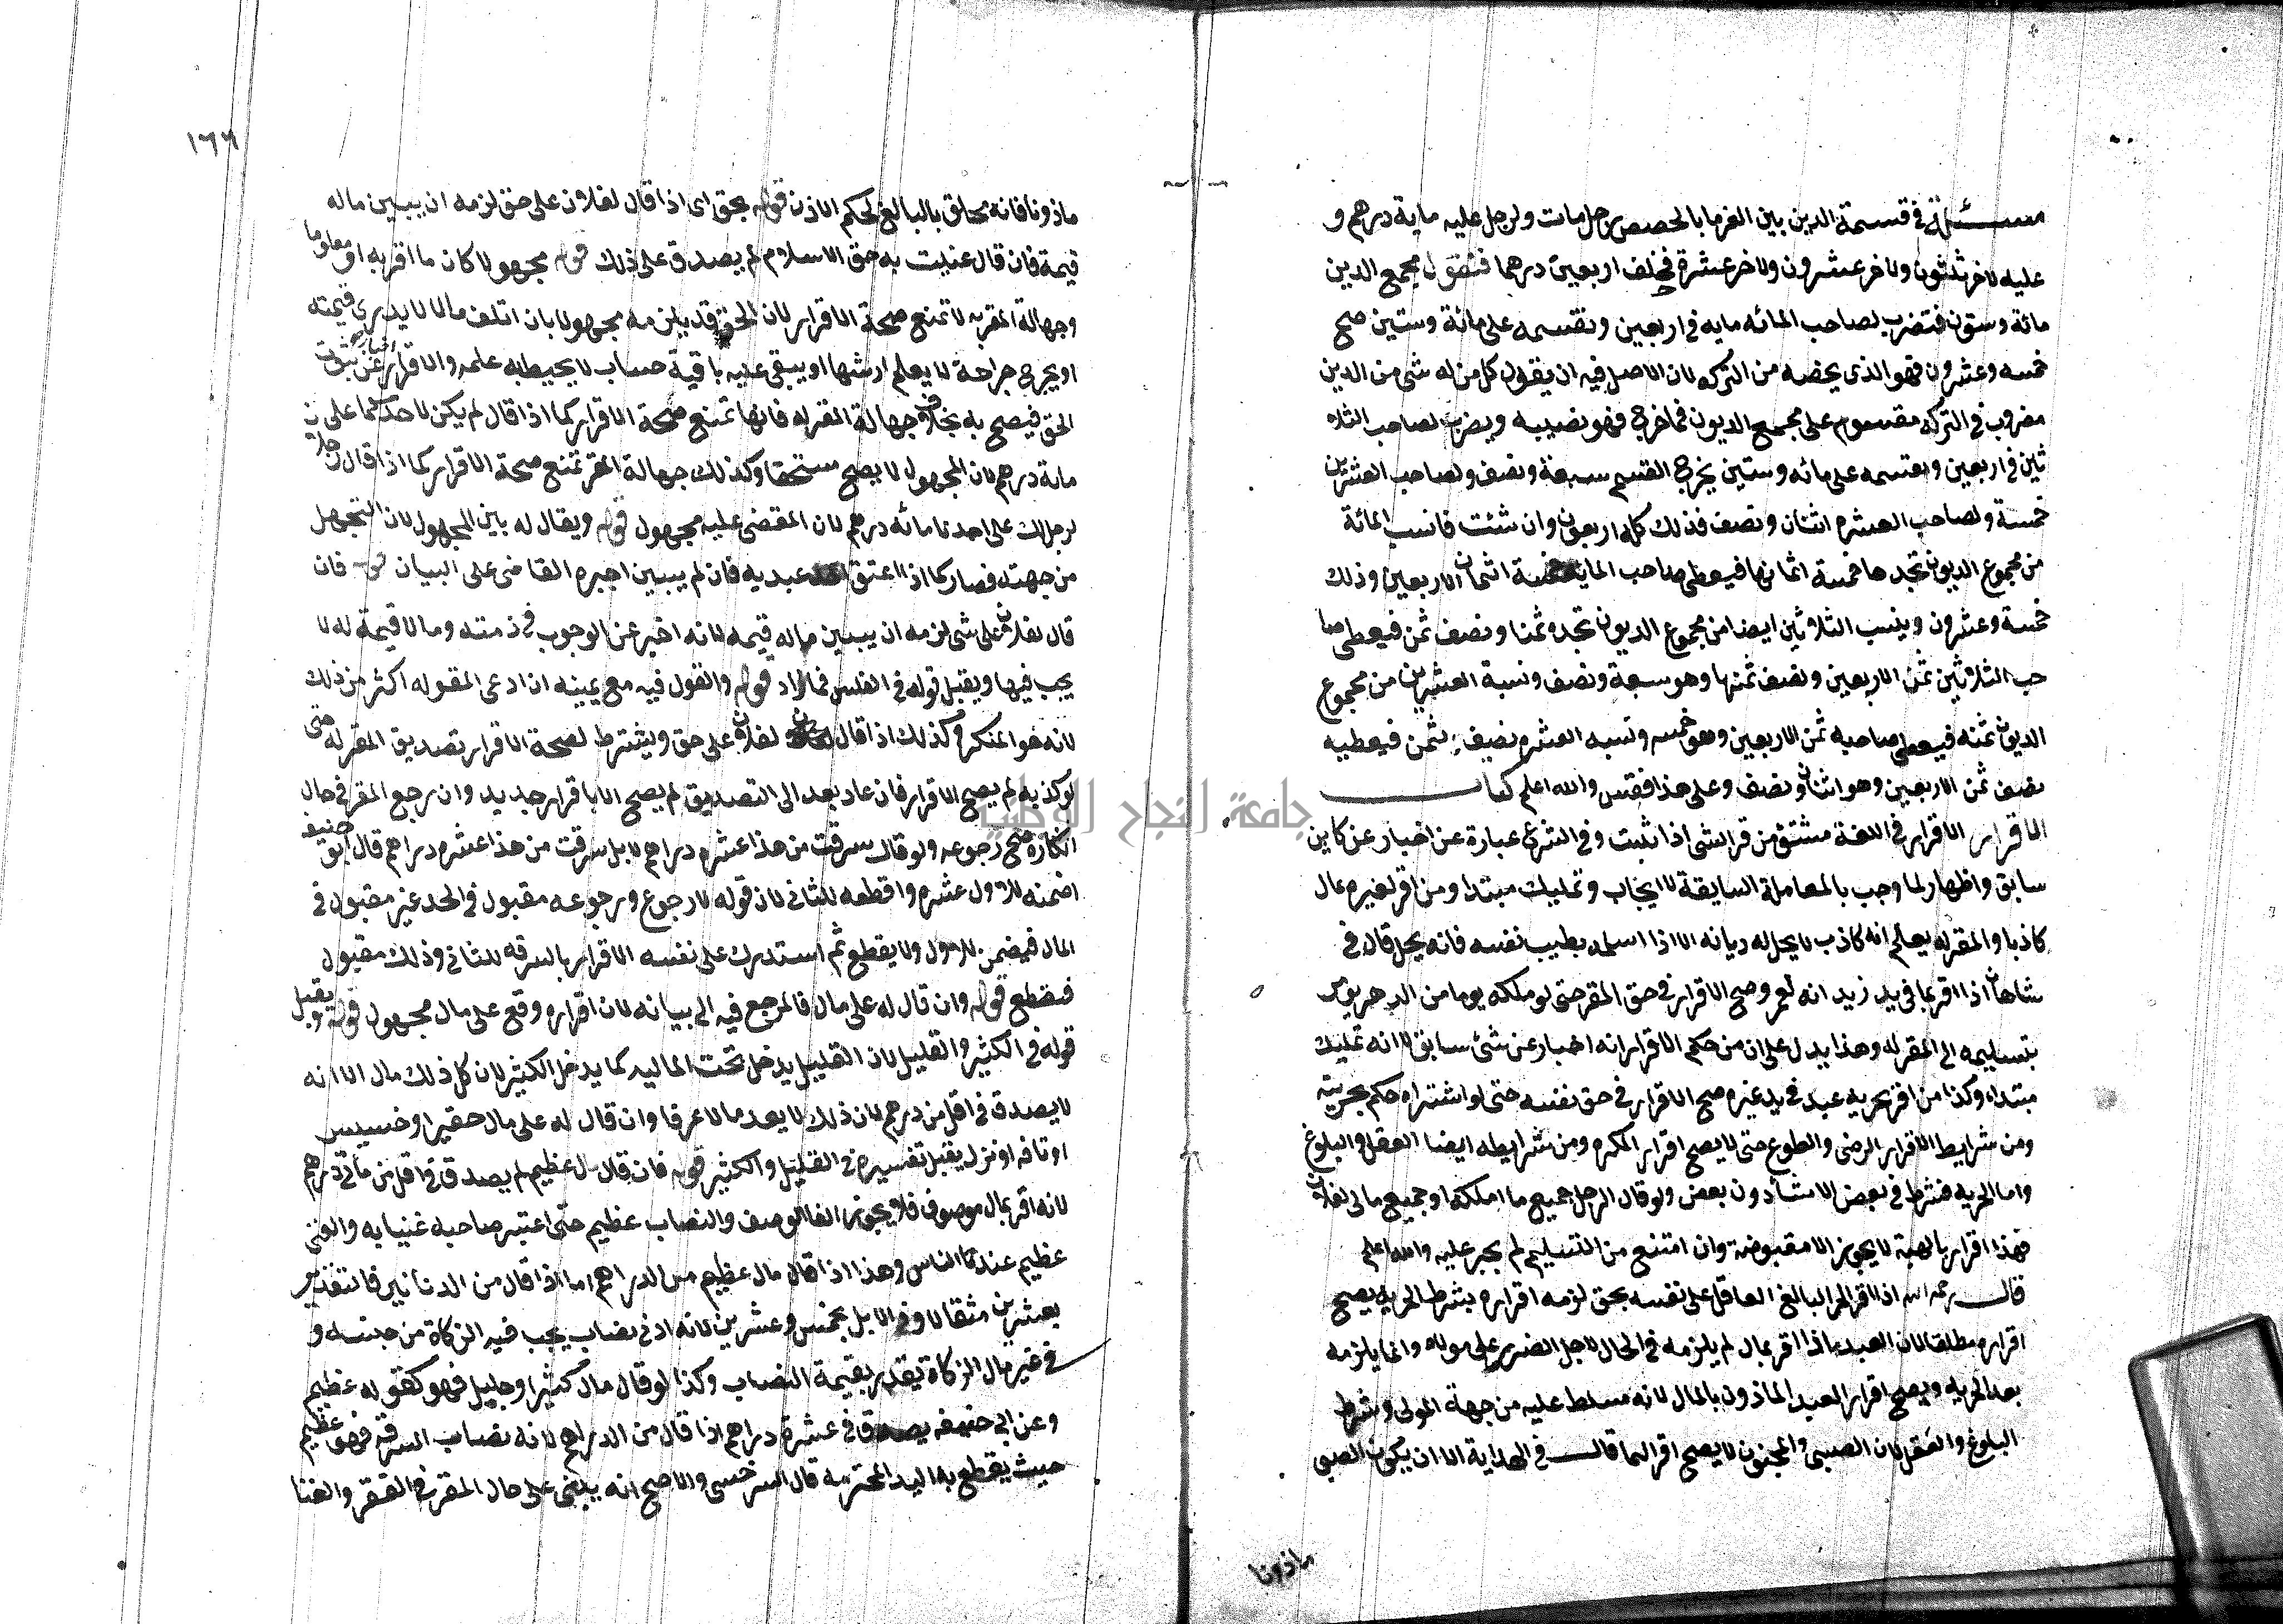 مسئلة في قسمة الدين بين الغرما بالحصص رجل مات ولرجل عليه ماية درهم و
عليه لاخر ثلثون ولاخر عشرون ولاخر عشرة فخلف اربعين درهما فنقول مجمع الدين
مائة وستون فتضرب لصاحب المائه مايه في اربعين ونقسمه على مائة وستين صح
خمسه وعشرون فهو الذي يخصه من التركه لان الاصل فيه ان يقول كل من له شي من الدين
مضروب في التركه مقسوم على مجمع الديون فما خرج فهو نصيبه ويضرب لصاحب الثلا
ثين في اربعين ونقسمه على مائه وستين يخرج القسم سبعة ونصف ولصاحب العشرين
خمسة ولصاحب العشره اثنان ونصف فذلك كله اربعون وان شئت فانسب المائة
من مجموع الديون تجدها خمسة اثمانها فيعطى صاحب الماية خمسة اثمان الاربعين وذلك
خمسة وعشرون وينسب الثلاثين ايضا من مجموع الديون تجده ثمنا ونصف ثمن فيعطى صا
حب الثلاثين ثمن الاربعين ونصف ثمنها وهو سبعة ونصف ونسبة العشرين من مجموع
الديون ثمنه فيعطى صاحبه ثمن الاربعين وهو خمسه ونسبه العشره نصف ثمن فيعطيه
نصف ثمن الاربعين وهو اثنان ونصف وعلى هذا فقس والله اعلم كتاب
الاقرار الاقرار في اللغة مشتق من قر الشي اذا ثبت وفي الشرع عبارة عن اخبار عن كاين
سابق واظهار لما وجب بالمعاملة السابقة لا ايجاب وتمليك مبتدا ومن اقر لغيره بمال
كاذبا والمقر له يعلم انه كاذب لا يحل له ديانه الا اذا اسلمه بطيب نفسه فانه يحل قال في
شاهان اذا اقر بما في يد زيد انه لعمرو صح الاقرار في حق المقر حتى لو ملكه يوما من الدهر يومر
بتسليمه الى المقر له وهذا يدل على ان من حكم الاقرار انه اخبار عن شئ سابق لا انه تمليك
مبتداه وكذا من اقر بحريه عبد في يد غيره صح الاقرار في حق نفسه حتى لو اشتراه حكم بحريته
ومن شرايط الاقرار الرضى والطوع حتى لا يصح اقرار المكره ومن شرايطه ايضا العقل والبلوغ
واما الحريه فشرط في بعض الاشيا دون بعض ولو قال الرجل جميع ما املكه او جميع مالي لفلان
فهذا اقرار بالهبة لا يجوز الا مقبوضة وان امتنع من التسليم لم يجبر عليه والله اعلم
قال رحمه الله اذا اقر الحر البالغ العاقل على نفسه بحق لزمه اقراره بشرط الحريه ليصح
اقراره مطلقا لان العبد اذا اقر بمال لم يلزمه في الحال لاجل الضرر على مولاه وانما يلزمه
بعد الحريه ويصح اقرار العبد الماذون بالمال لانه مسلط عليه من جهة المولى وشرط
البلوغ والعقل لان الصبي والمجنون لا يصح اقرارهما قال في الهداية الا ان يكون الصبي
ماذونا
١٦٦
ماذونا فانه محلق بالبالغ لحكم الاذن قوله بحق اي اذا قال لفلان على حق لزمه ان يبين ماله
قيمة فان قال عنيت به حق الاسلام لم يصدق على ذلك قوله مجهولا كان ما اقر به او معلوما
وجهالة المقر به لا تمنع صحة الاقرار لان الحق قد يلزمه مجهولا بان اتلف مالا لا يدري قيمته
او يجرح جراحة لا يعلم ارشها او يبقى عليه باقية حساب لا يحيط به علمه والاقرار اخبار عن ثبوت
الحق فيصح به بخلاف جهالة المقر له فانها تمنع صحة الاقرار كما اذا قال لم يكن لاحدكما علي
ماية درهم لان المجهول لا يصح مستحقا وكذلك جهالة المقر تمنع صحة الاقرار كما اذا قال رجلان
لرجل لك على احدنا مائه درهم لان المقضى عليه مجهول قوله ويقال له بين المجهول لان التجهل
من جهته فصار كما اذا اعتق احد عبديه فان لم يبين اجبره القاضي على البيان قوله فان
قال لفلان على شي لزمه ان يبين ماله قيمه لانه اخبر عن الوجوب في ذمته وما لا قيمة له لا
يجب فيها ويقبل قوله في الفلس فما زاد قوله والقول فيه مع يمينه ان ادعى المقر له اكثر من ذلك
لانه هو المنكر وكذلك اذا قال لفلان على حق ويشترط لصحة الاقرار تصديق المقر له حتى
لو كذبه لم يصح الاقرار فان عاد بعد الى التصديق لم يصح الا باقرار جديد وان رجع المقر في حال
انكاره صح رجوعه ولو قال سرقت من هذا عشره دراهم لا بل سرقت من هذا عشره دراهم قال ابو حنيفه
اضمنه للاول عشره واقطعه للثاني لان قوله لا رجوع ورجوعه مقبول في الحد غير مقبول في
المال فيضمن للاول ولا يقطع ثم استدرك على نفسه الاقرار بالسرقه للثاني وذلك مقبول
فيقطع قوله وان قال له على مال فالمرجع فيه الى بيانه لان اقراره وقع على مال مجهول قوله ويقبل
قوله في الكثير والقليل لان القليل يدخل تحت الماليه كما يدخل الكثير لان كل ذلك مال الا انه
لا يصدق في اقل من درهم لان ذلك لا يعد مالا عرفا وان قال له على مال حقير او خسيس
او تافه او نزل يقبل تفسيره في القليل والكثير قوله فان قال مال عظيم لم يصدق في اقل من مائتي درهم
لانه اقر بمال موصوف فلا يجوز الغا الوصف والنصاب عظيم حتى اعتبر صاحبه غنيا به والغنى
عظيم عند الناس وهذا اذا قال مال عظيم من الدراهم اما اذا قال من الدنانير فالتقدير
بعشرين مثقالا وفي الابل بخمس وعشرين لانه ادنى نصاب يجب فيه الزكاة من جنسه و
في غير مال الزكاة يقدر بقيمة النصاب وكذا لو قال مال كثير او جليل فهو كقوله عظيم
وعن ابي حنيفه يصدق في عشرة دراهم اذا قال من الدراهم لانه نصاب السرقه فهو عظيم
حيث يقطع به اليد المحترمه قال السرخسي والاصح انه يبنى على حال المقر في الفقر والغنا
جامعة النجاح الوطنية